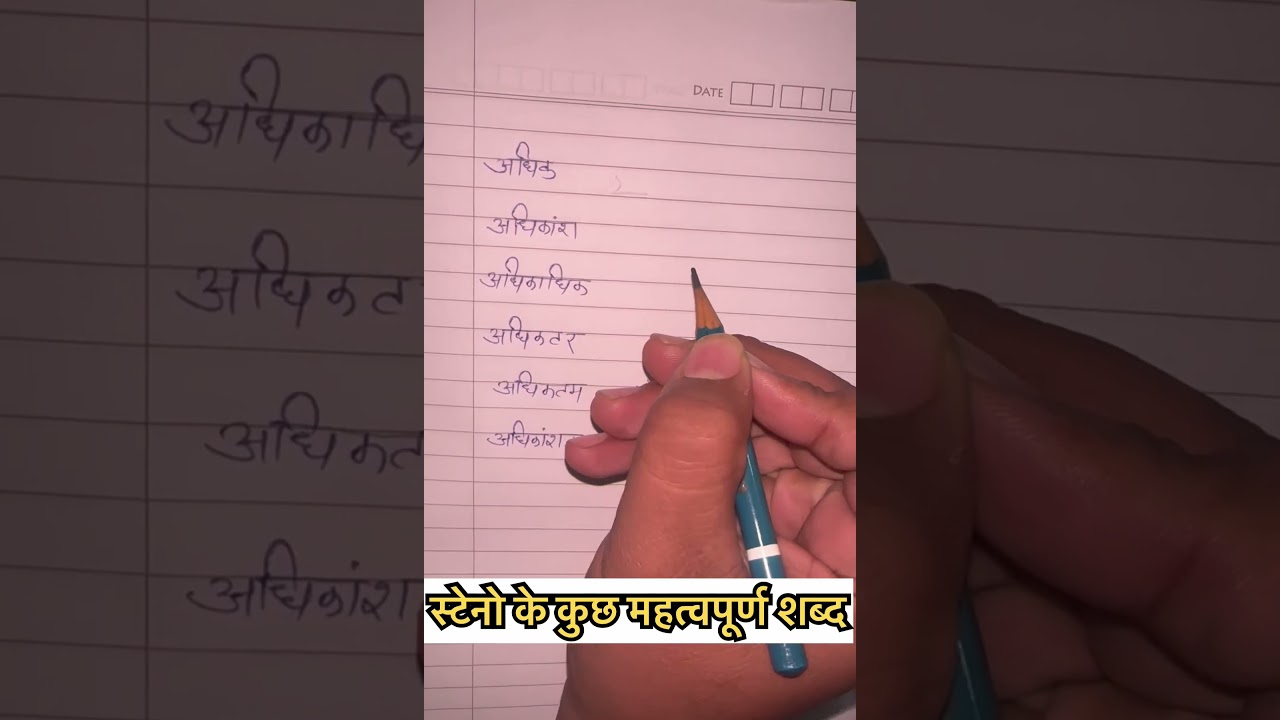 DATE
अधिक
अधिकांश
अधिकाधिक
अधिकटर
अधिकतम
अधिकांश
स्टेनो के कुछ महत्वपूर्ण शब्द